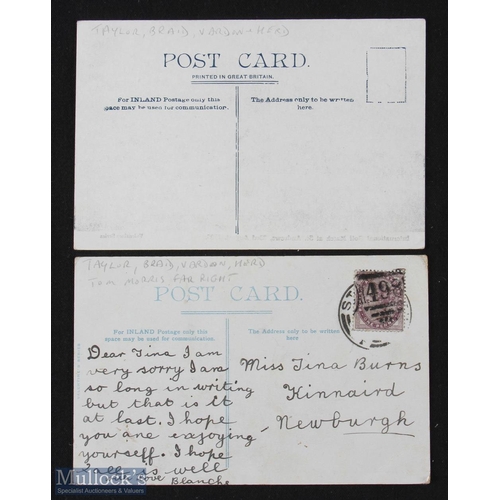 TAYLOR, BRAID, VARDON + HERD
POST CARD.
PRINTED IN GREAT BRITAIN.
For INLAND Postage only this
space may be used for communication.
The Address only to be written
here.
TAYLOR, BRAID, VARDON, HERD
TOM MORRIS FAR RIGHT
POST CARD.
For INLAND Postage only this
space may be used for communication.
The Address only to be written
here.
498
Dear Tina I am
very sorry I am
so long in writing
but that is it
at last. I hope
you are enjoying
yourself. I hope
all is well
love Blanche
Miss Tina Burns
Kinnaird
Newburgh
Mullock's
Specialist Auctioneers & Valuers